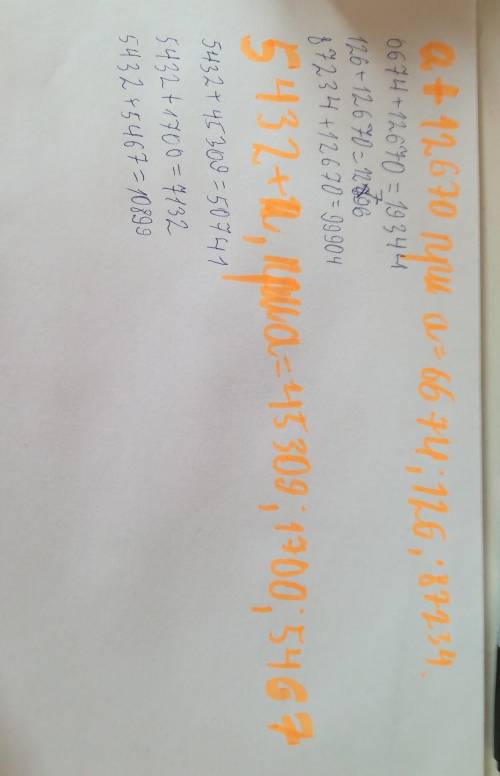 a + 12670 при a = 6674; 126; 87234.
6674 + 12670 = 19344
126 + 12670 = 12796
87234 + 12670 = 99904
5432 + n, при a = 45309; 1700; 5467
5432 + 45309 = 50741
5432 + 1700 = 7132
5432 + 5467 = 10899